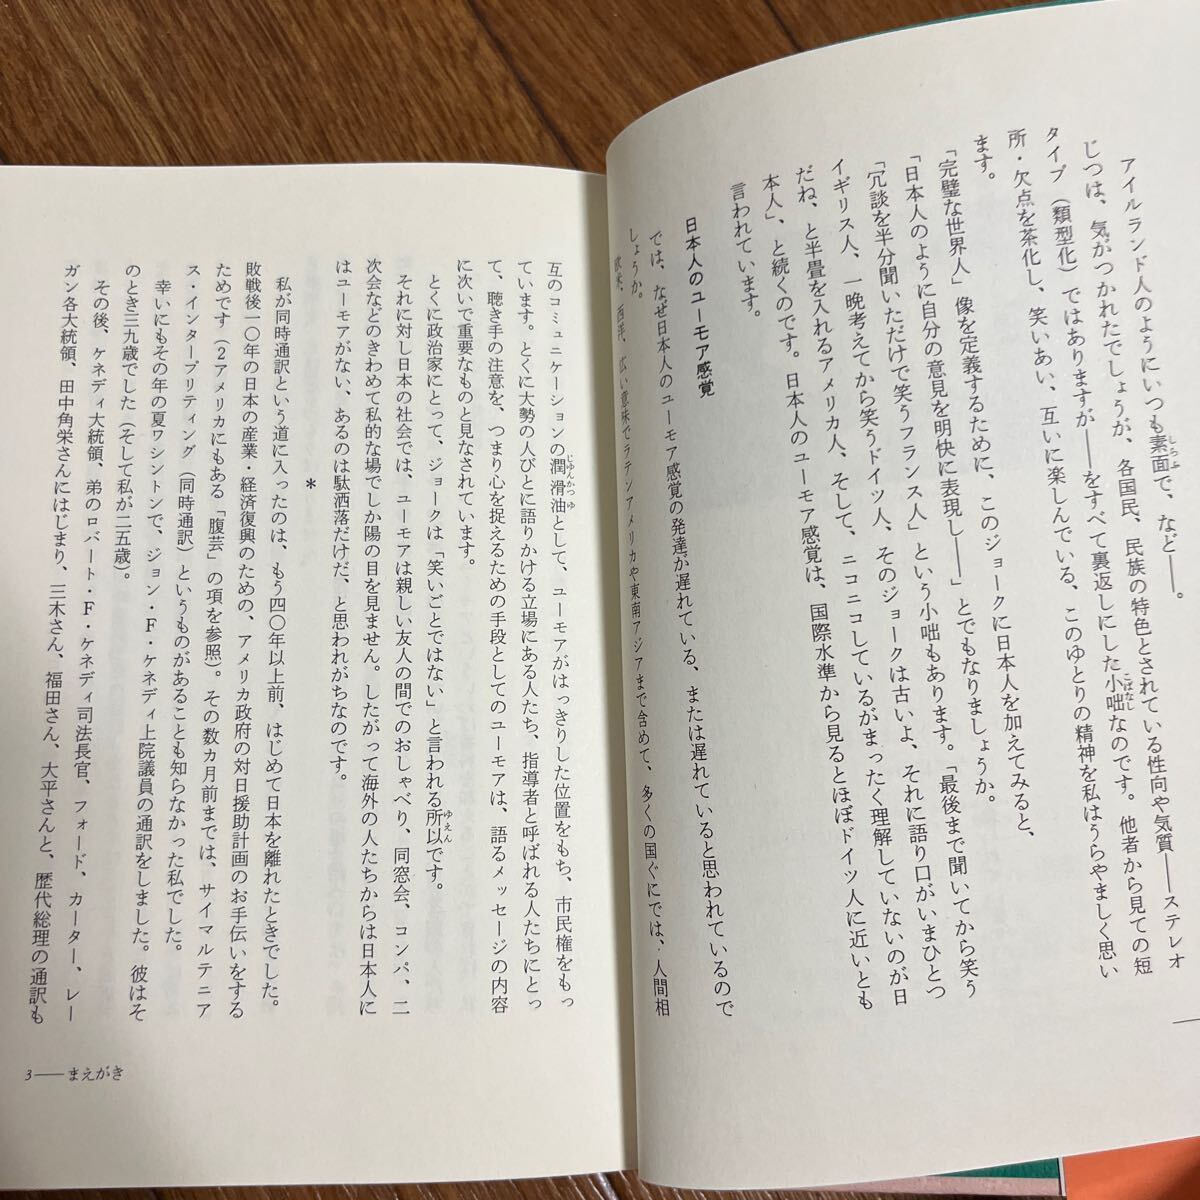 アイルランド人のようにいつも素面で、など――。
しらふ
じつは、気がつかれたでしょうが、各国民、民族の特色とされている性向や気質――ステレオ
タイプ（類型化）ではありますが――をすべて裏返しにした小咄なのです。他者から見ての短
こばなし
所・欠点を茶化し、笑いあい、互いに楽しんでいる、このゆとりの精神を私はうらやましく思い
ます。
「完璧な世界人」像を定義するために、このジョークに日本人を加えてみると、
「日本人のように自分の意見を明快に表現し――」とでもなりましょうか。
「冗談を半分聞いただけで笑うフランス人」という小咄もあります。「最後まで聞いてから笑う
イギリス人、一晩考えてから笑うドイツ人、そのジョークは古いよ、それに語り口がいまひとつ
だね、と半畳を入れるアメリカ人、そして、ニコニコしているがまったく理解していないのが日
本人」、と続くのです。日本人のユーモア感覚は、国際水準から見るとほぼドイツ人に近いとも
言われています。
日本人のユーモア感覚
では、なぜ日本人のユーモア感覚の発達が遅れている、または遅れていると思われているので
しょうか。
欧米、西洋、広い意味でラテンアメリカや東南アジアまで含めて、多くの国ぐにでは、人間相
互のコミュニケーションの潤滑油として、ユーモアがはっきりした位置をもち、市民権をもっ
じゆんかつゆ
ています。とくに大勢の人びとに語りかける立場にある人たち、指導者と呼ばれる人たちにとっ
て、聴き手の注意を、つまり心を捉えるための手段としてのユーモアは、語るメッセージの内容
に次いで重要なものと見なされています。
とくに政治家にとって、ジョークは「笑いごとではない」と言われる所以です。
ゆえん
それに対し日本の社会では、ユーモアは親しい友人の間でのおしゃべり、同窓会、コンパ、二
次会などのきわめて私的な場でしか陽の目を見ません。したがって海外の人たちからは日本人に
はユーモアがない、あるのは駄洒落だけだ、と思われがちなのです。
*
私が同時通訳という道に入ったのは、もう四〇年以上前、はじめて日本を離れたときでした。
敗戦後一〇年の日本の産業・経済復興のための、アメリカ政府の対日援助計画のお手伝いをする
ためです（2アメリカにもある「腹芸」の項を参照）。その数カ月前までは、サイマルテニア
ス・インタープリティング（同時通訳）というものがあることも知らなかった私でした。
幸いにもその年の夏ワシントンで、ジョン・F・ケネディ上院議員の通訳をしました。彼はそ
のとき三九歳でした（そして私が二五歳）。
その後、ケネディ大統領、弟のロバート・F・ケネディ司法長官、フォード、カーター、レー
ガン各大統領、田中角栄さんにはじまり、三木さん、福田さん、大平さんと、歴代総理の通訳も
3――まえがき